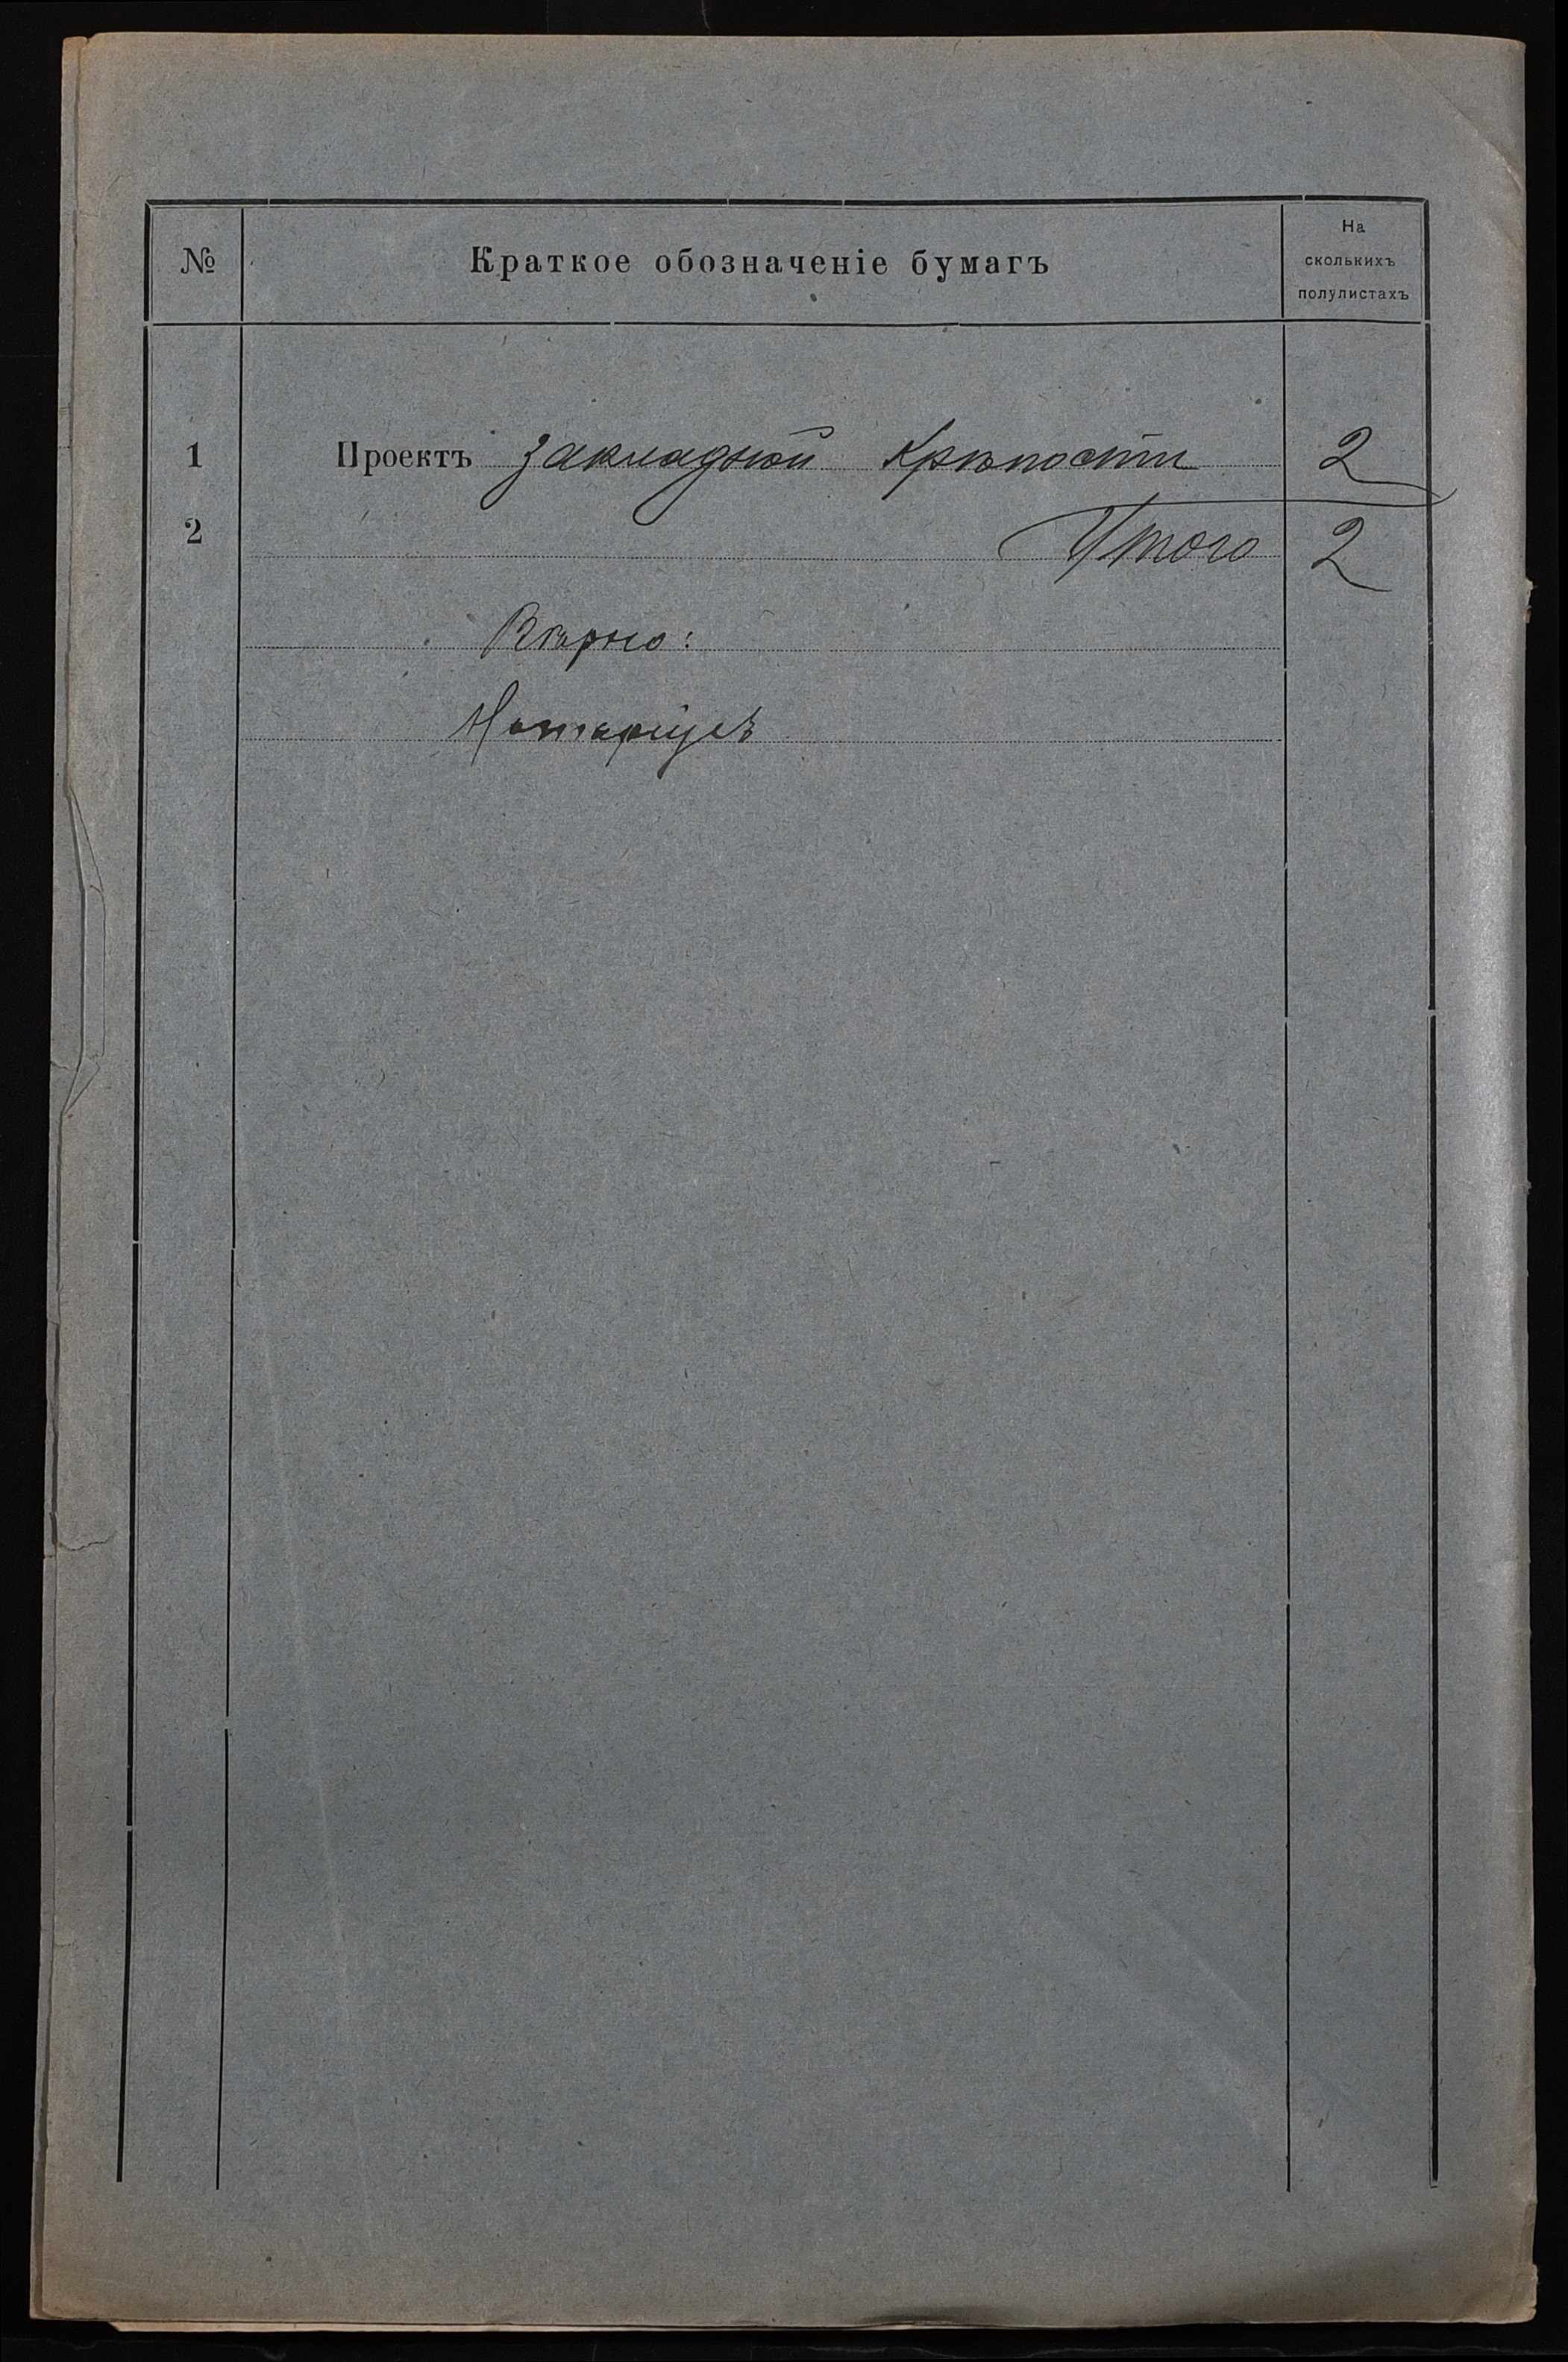 № Краткое обозначеніе бумагъ На сколькихъ полулистахъ
1 Проектъ закладной крѣпости 2
2 Итого 2
Вѣрно:
Нотаріусъ